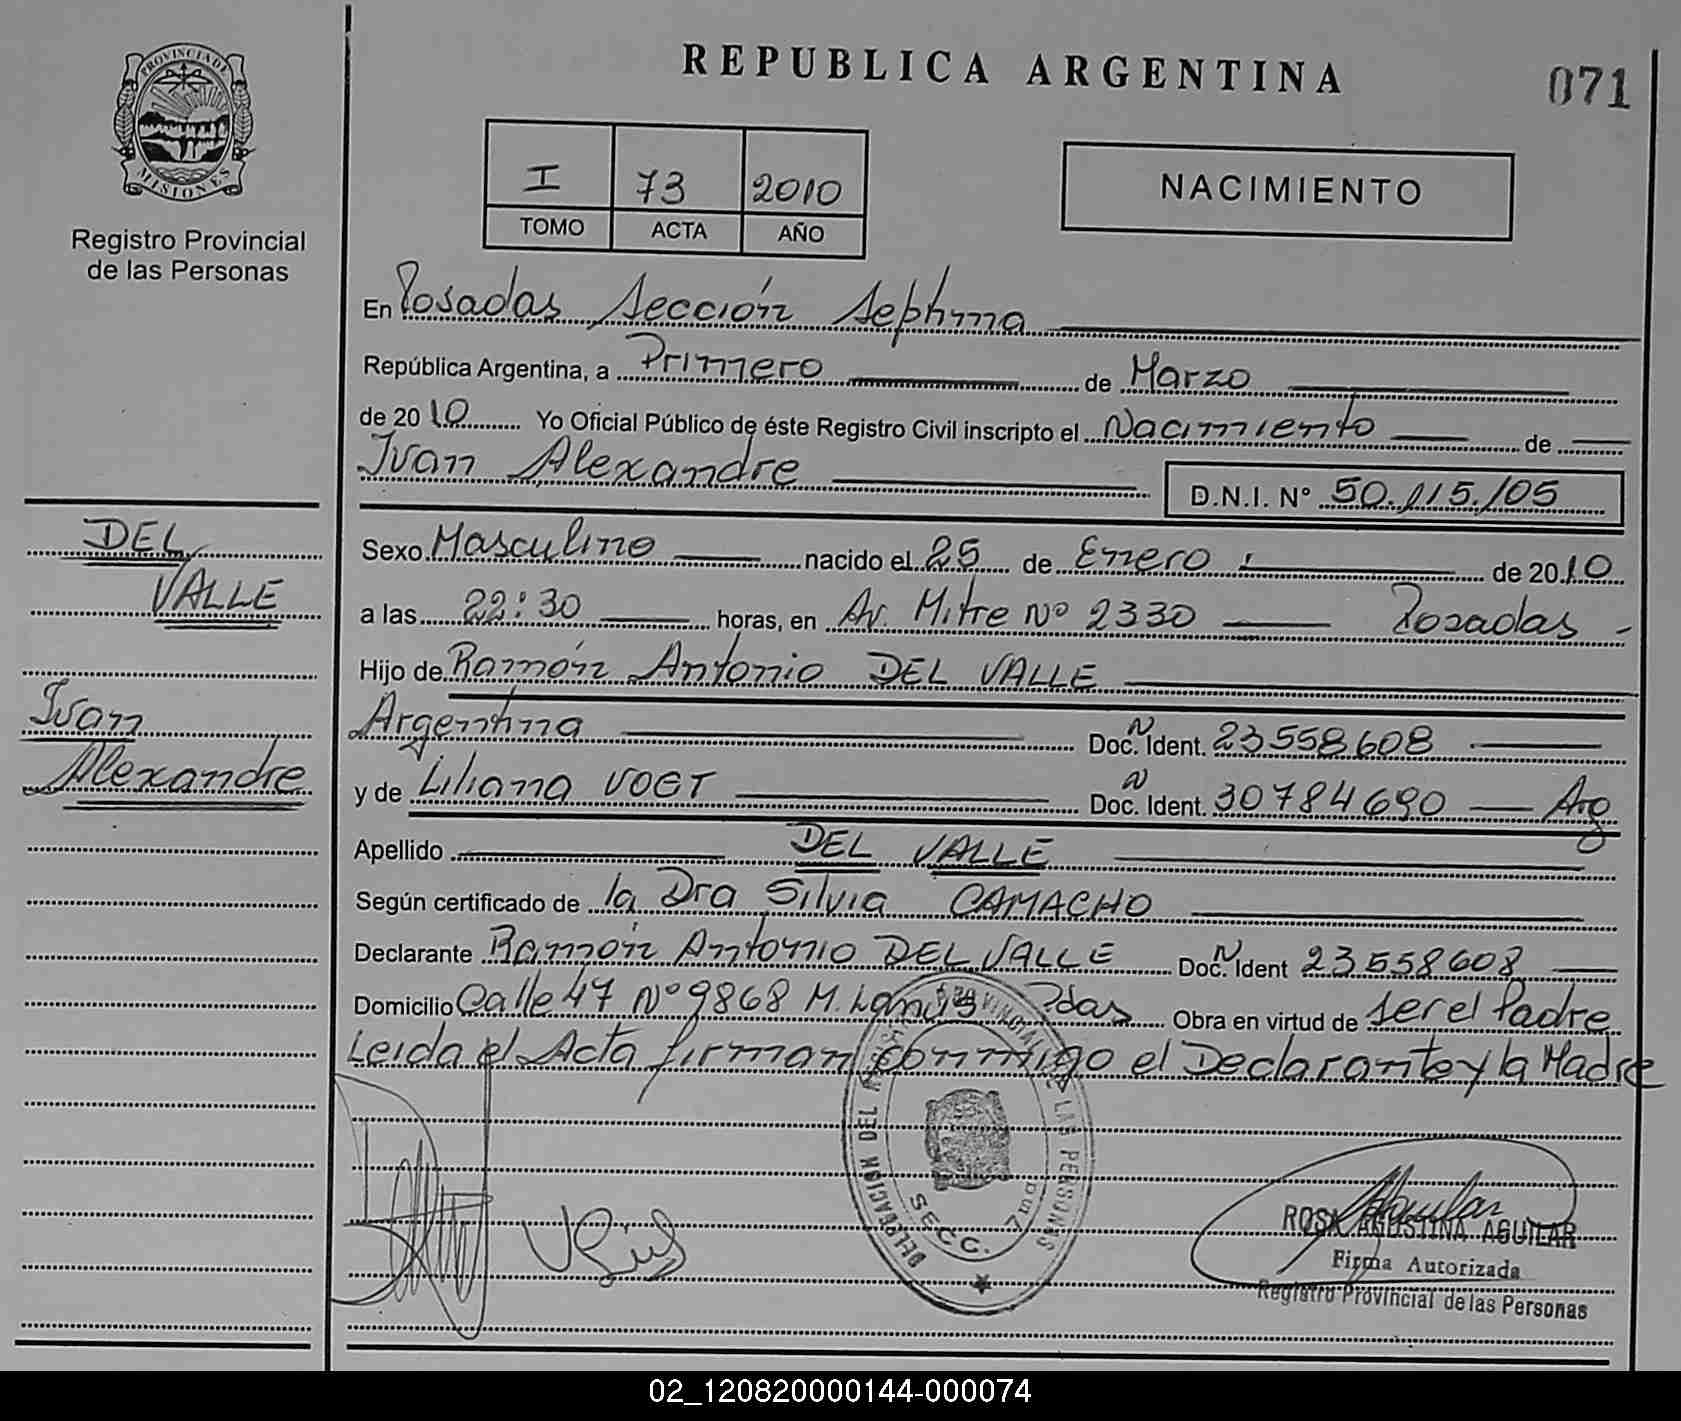 PROVINCIA DE
MISIONES
Registro Provincial
de las Personas
REPUBLICA ARGENTINA
071
I 73 2010
TOMO ACTA AÑO
NACIMIENTO
En Posadas Sección Septima
República Argentina, a Primero de Marzo
de 2010 Yo Oficial Público de éste Registro Civil inscripto el Nacimiento de
Ivan Alexandre D.N.I. Nº 50.115.105
Sexo Masculino nacido el 25 de Enero de 2010
a las 22:30 horas, en Av. Mitre Nº 2330 Posadas
Hijo de Ramón Antonio DEL VALLE
Argentina Doc. N Ident. 23558608
y de Liliana VOGT Doc. N Ident. 30784690 Arg
Apellido DEL VALLE
Según certificado de la Dra Silvia CAMACHO
Declarante Ramón Antonio DEL VALLE Doc. N Ident 23558608
Domicilio Calle 47 Nº 9868 M. Lanus Pdas Obra en virtud de ser el Padre
Leida el Acta firman conmigo el Declarante y la Madre
DEL
VALLE
Ivan
Alexandre
DELEGACION DEL REGISTRO PROVINCIAL DE LAS PERSONAS
SECC. 7ma
ROSA AGUSTINA AGUILAR
Firma Autorizada
Registro Provincial de las Personas
02_120820000144-000074